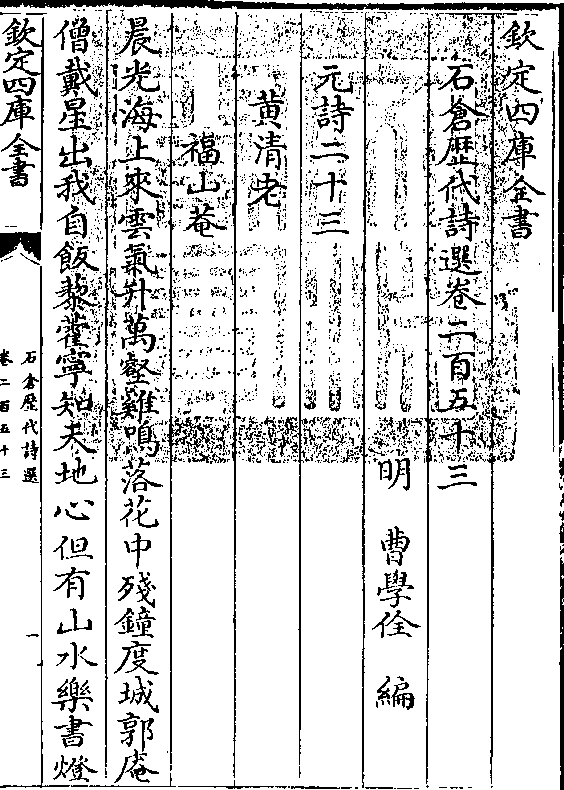 欽定四庫全書
石倉歴代詩選卷二百五十三
明 曹學佺 編
元詩二十三
黄清老
福山菴
晨光海上來雲氣升萬壑雞鳴落花中殘鐘度城郭庵
僧戴星出我自飯藜藿寧知天地心但有山水樂書燈
欽定四庫全書
石倉歴代詩選
卷二百五十三
一